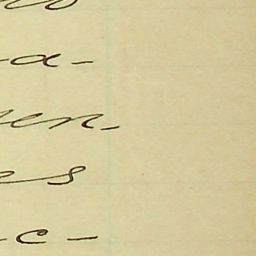 a-
en-
es
c-